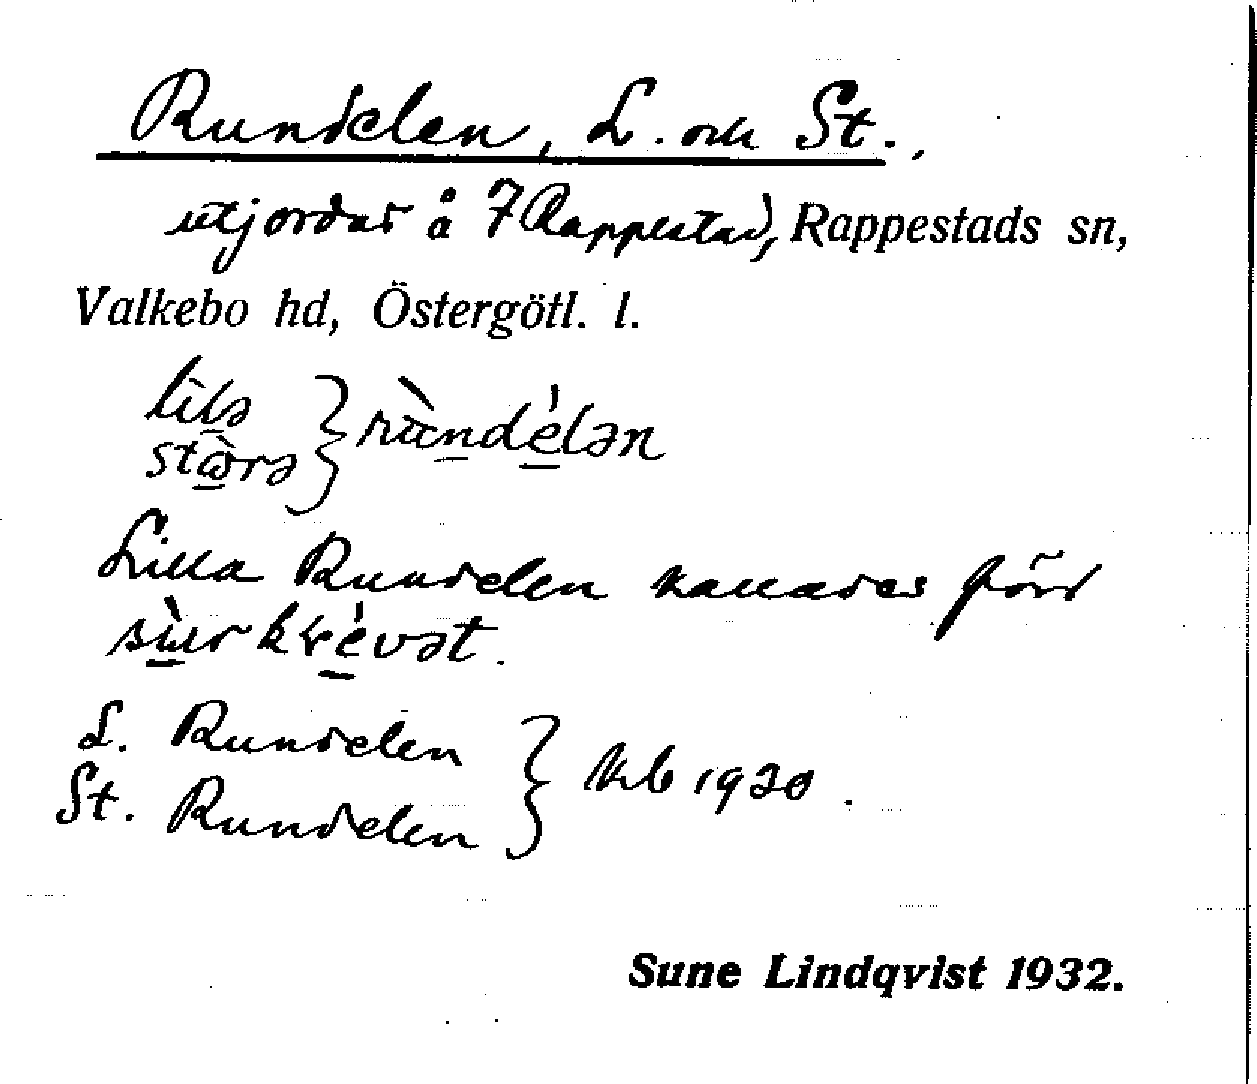 Rundelen, L. och St.,
utjordar å 7 Rappestad, Rappestads sn,
Valkebo hd, Östergötl. l.
lìlə
stòrə } rùndélən
Lilla Rundelen kallades förr
sùrkrévət.
L. Rundelen
St. Rundelen } kb 1930.
Sune Lindqvist 1932.